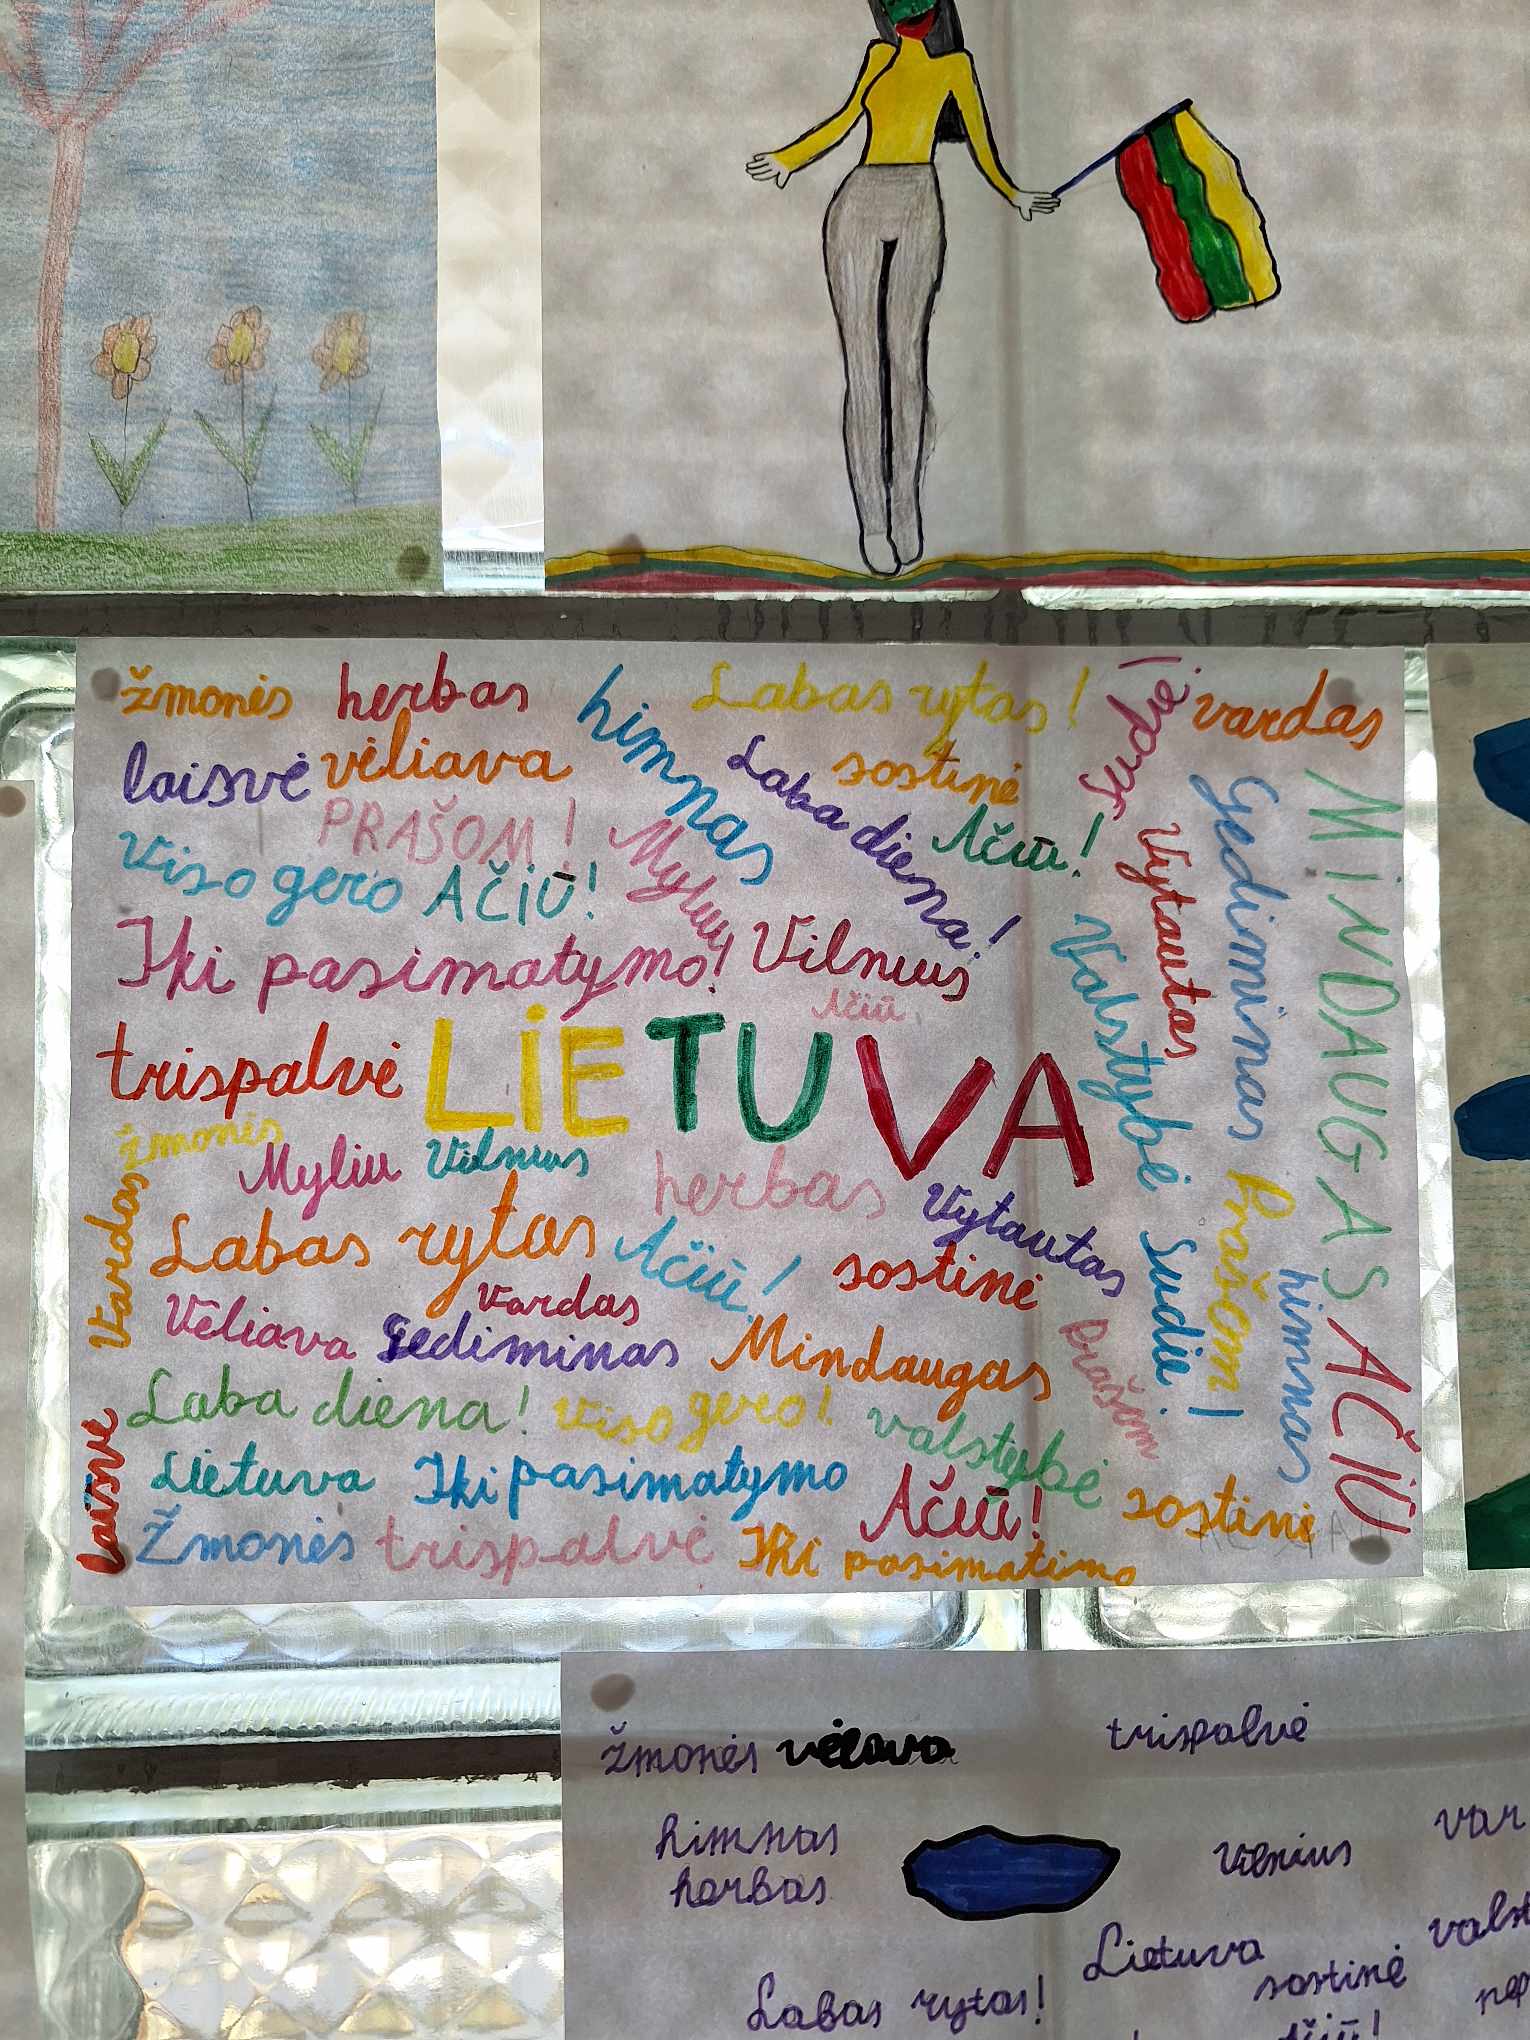 žmonės herbas himnas Labas rytas! Sudie! vardas
laisvė vėliava Laba diena! sostinė
PRAŠOM! Myliu Ačiū! Vytautas Gediminas MINDAUGAS
Viso gero AČIŪ!
Iki pasimatymo! Vilnius Valstybė
Ačiū
trispalvė LIETUVA
žmonės
Myliu Vilnius herbas Vytautas
Vardas Labas rytas Ačiū! sostinė Sudie! Prašom! himnas AČIŪ
Vardas
Vėliava Gediminas Mindaugas Prašom
Laba diena! Viso gero! valstybė
laisvė Lietuva Iki pasimatymo Ačiū! sostinė
Žmonės trispalvė Iki pasimatimo
žmonės trispalvė
himnas Vilnius var
herbas
Lietuva valst
sostinė
Labas rytas!
Ačiū!